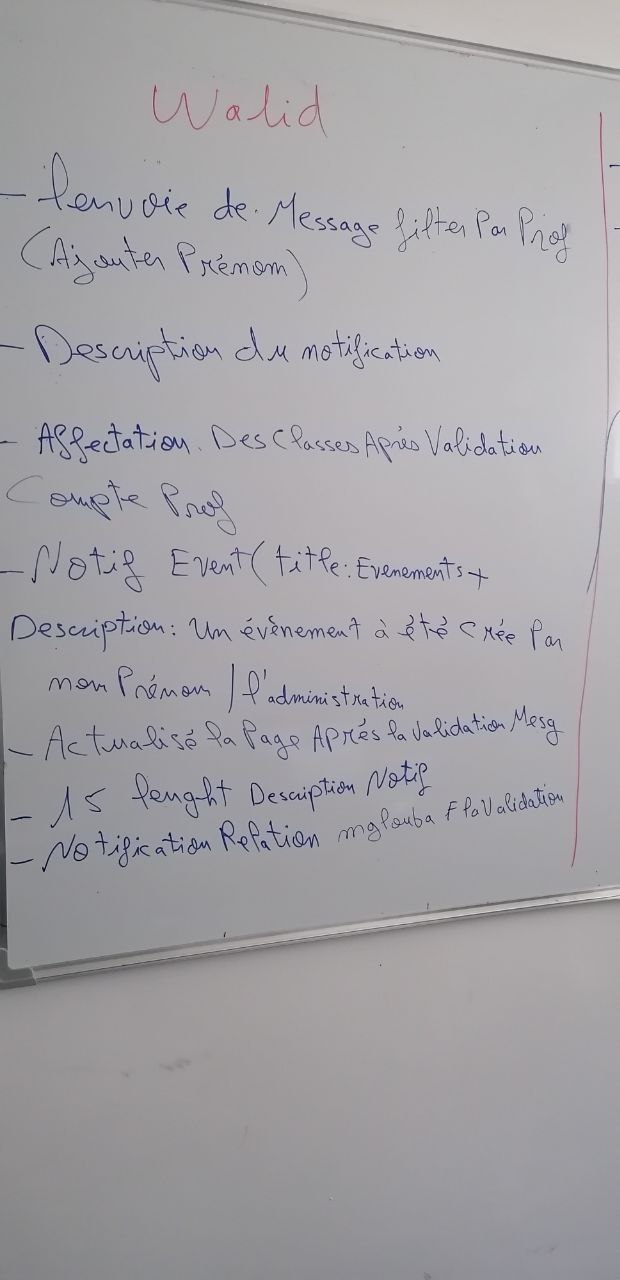 Walid
- l'envoie de Message filter Par Prof
(Ajouter Prénom)
- Description du notification
- Affectation Des Classes Après Validation
Compte Prof
- Notif Event (title: Evenements +
Description: Un évènement à été Créé Par
nom Prénom / l'administration
- Actualisé la Page Après la Validation Mesg
- 15 lenght Description Notif
- Notification Relation mglouba F la Validation